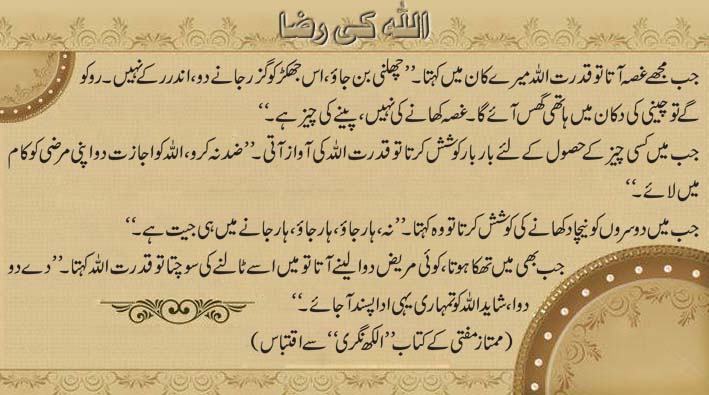 اللہ کی رضا
جب مجھے غصہ آتا تو قدرت اللہ میرے کان میں کہتا۔ ’’چھلنی بن جاؤ، اس جھکڑ کو گزر جانے دو، اندر رکے نہیں۔ روکو
گے تو چینی کی دکان میں ہاتھی گھس آئے گا۔ غصہ کھانے کی نہیں، پینے کی چیز ہے۔‘‘
جب میں کسی چیز کے حصول کے لئے بار بار کوشش کرتا تو قدرت اللہ کی آواز آتی۔ ’’ضد نہ کرو، اللہ کو اجازت دو اپنی مرضی کو کام
میں لائے۔‘‘
جب میں دوسروں کو نیچا دکھانے کی کوشش کرتا تو وہ کہتا۔ ’’نہ، ہار جاؤ، ہار جاؤ، ہار جانے میں ہی جیت ہے۔‘‘
جب بھی میں تھکا ہوتا، کوئی مریض دوا لینے آتا تو میں اسے ٹالنے کی سوچتا تو قدرت اللہ کہتا۔ ’’دے دو
دوا، شاید اللہ کو تمہاری یہی ادا پسند آ جائے۔‘‘
(ممتاز مفتی کے کتاب ’’الکھ نگری‘‘ سے اقتباس)